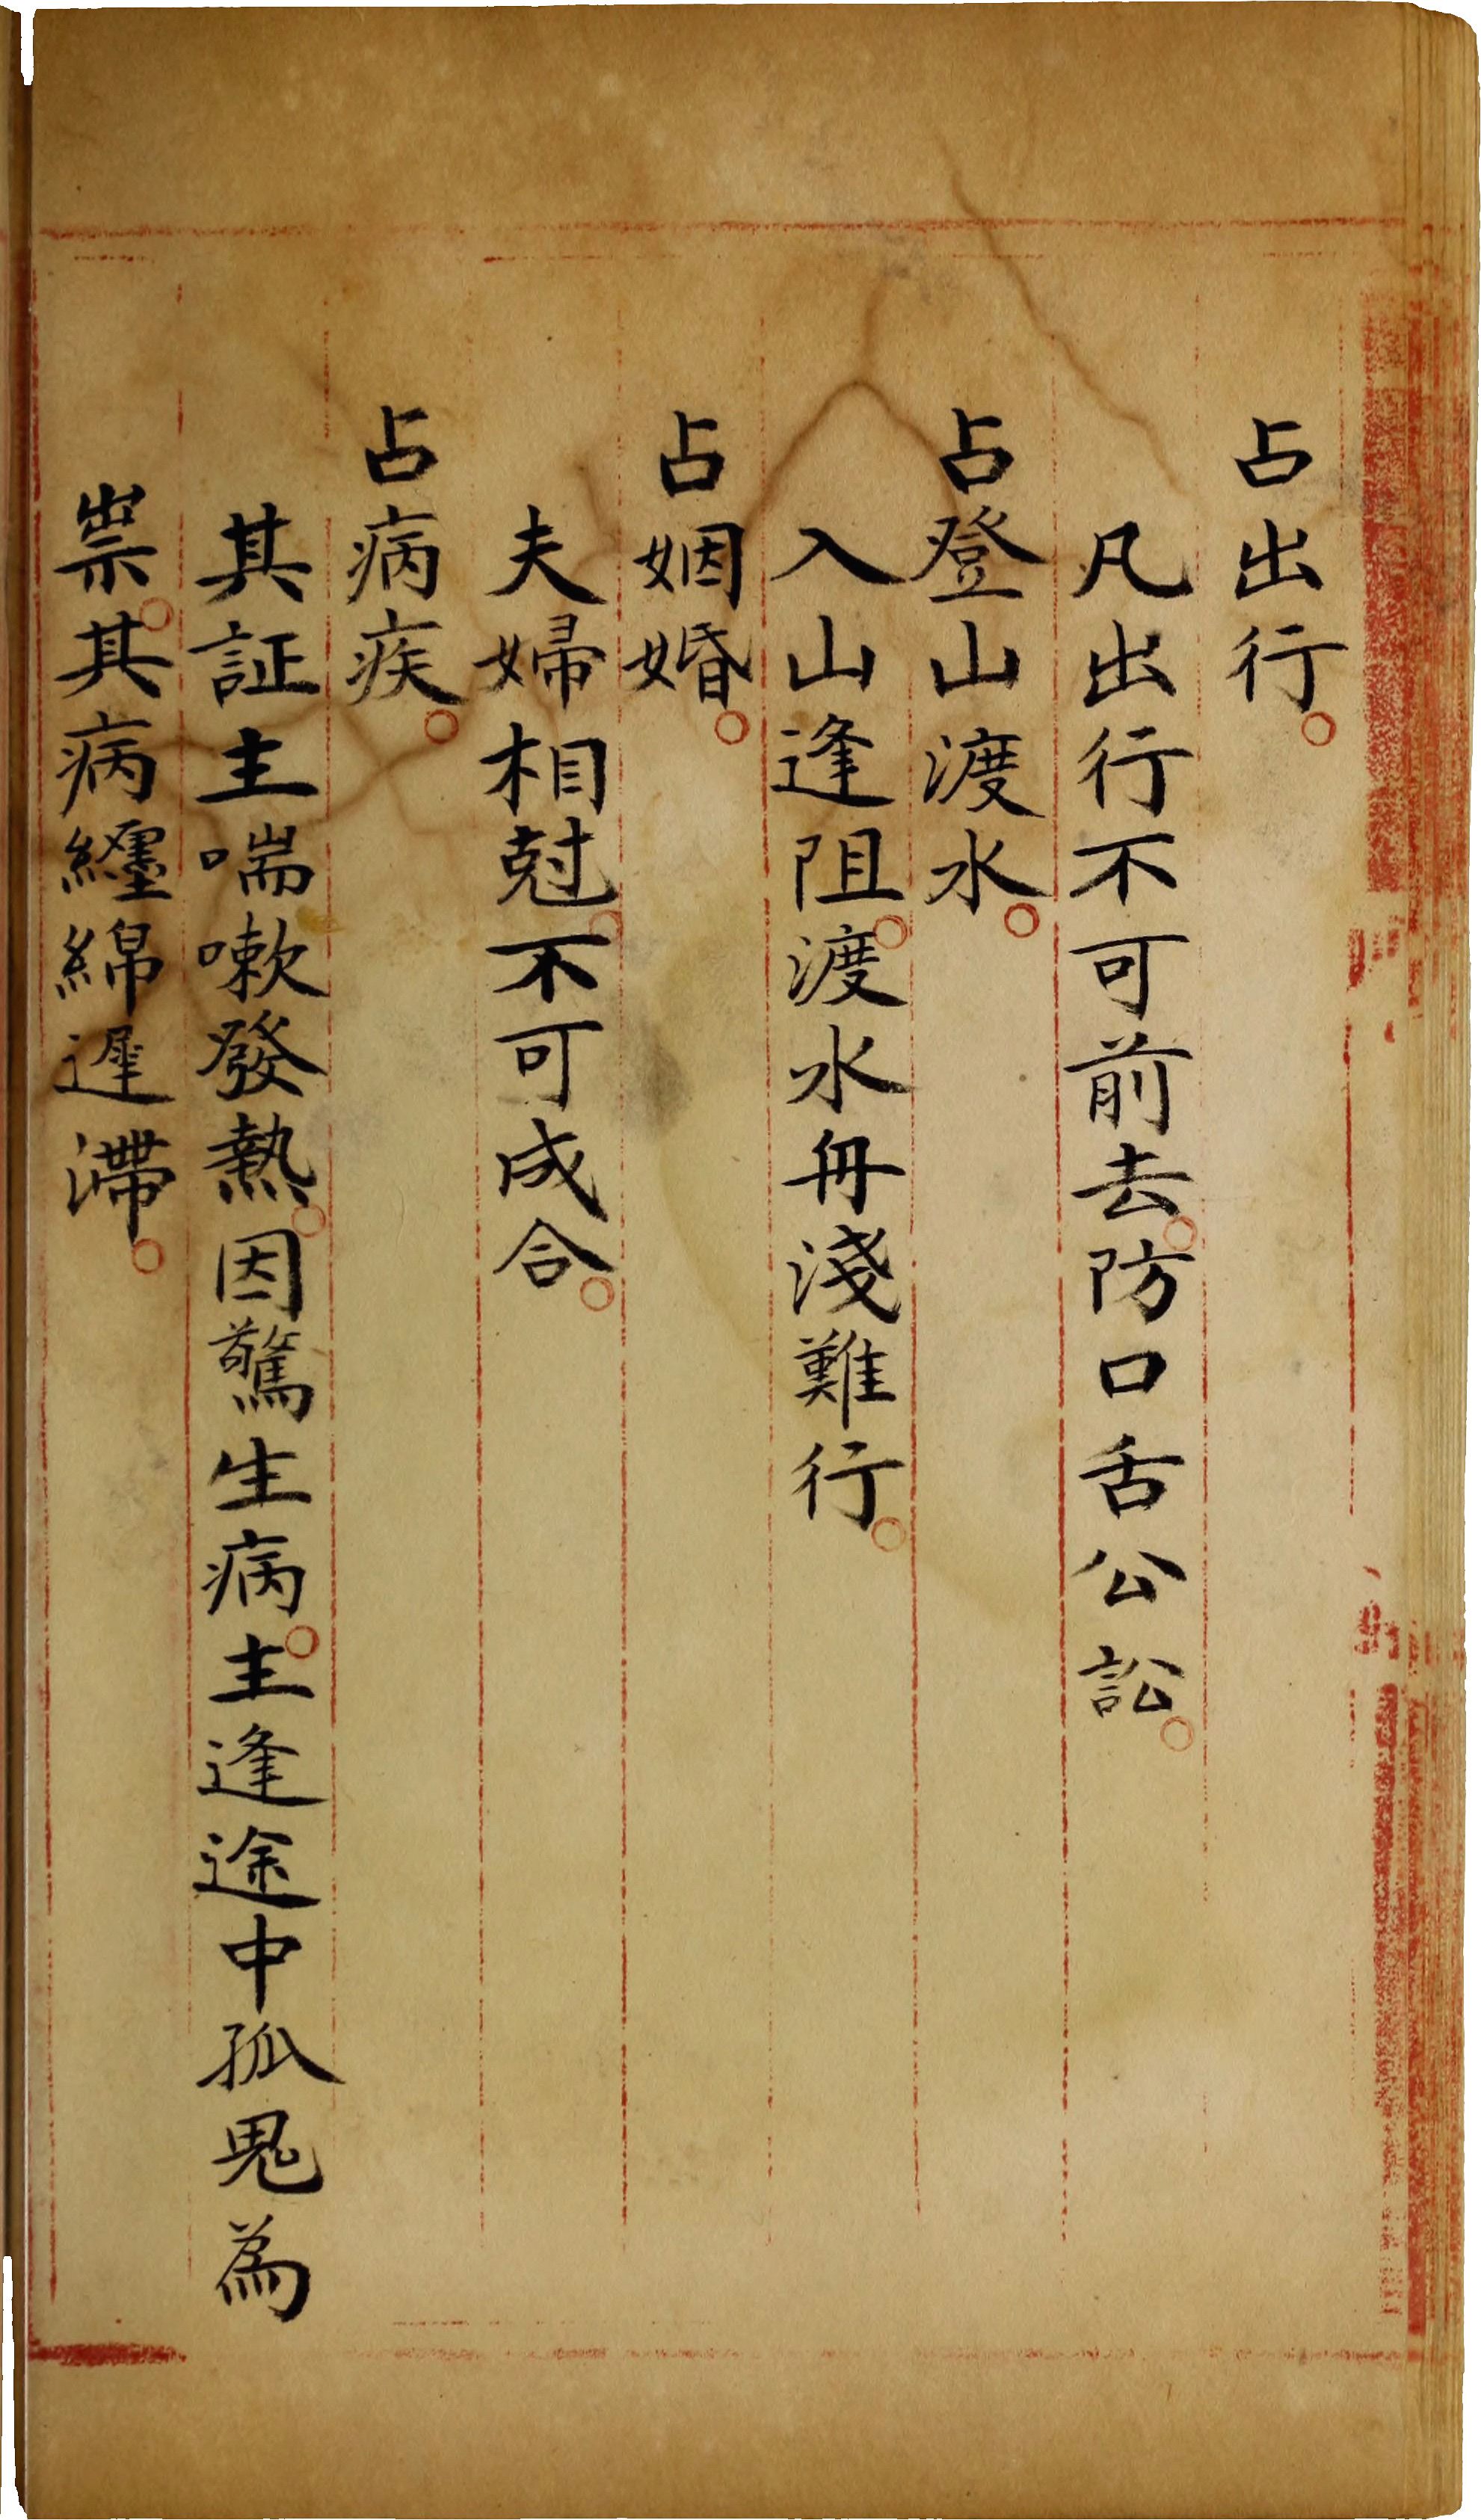 占出行。
凡出行不可前去。防口舌公訟。
占登山渡水。
入山逢阻。渡水舟淺難行。
占姻婚。
夫婦相尅。不可成合。
占病疾。
其証主喘嗽發熱。因驚生病。主逢途中孤鬼為
祟。其病纏綿遲滯。